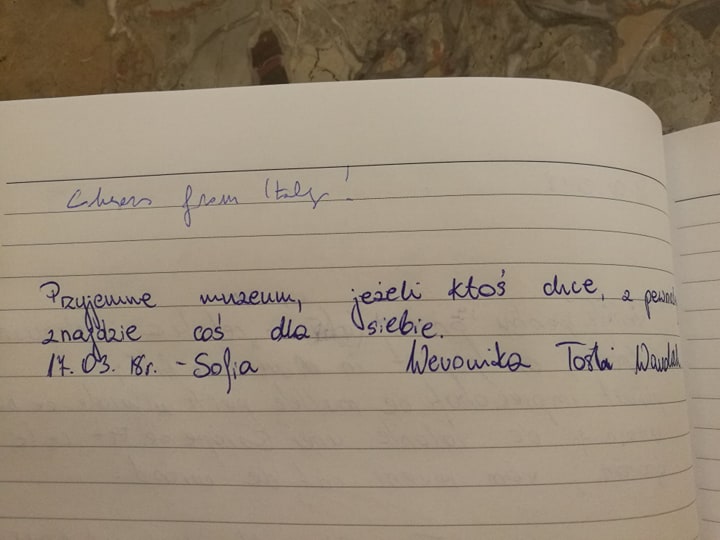 Cheers from Italy!
Przyjemne muzeum, jeżeli ktoś chce, z pewno
znajdzie coś dla siebie.
17.03.18r. - Sofia Weronika